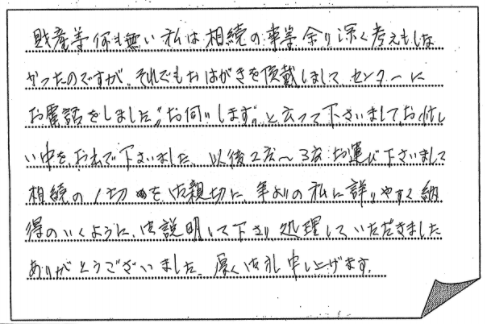 財産等何も無い私は相続の事等余り深く考えもしな
かったのですが、それでもおはがきを頂戴しまして、センターに
お電話をしました。"お伺いします"。と云って下さいましてお忙し
い中をお出で下さいました。以後2度〜3度お運び下さいまして
相続の1切を御親切に、年よりの私に詳りやすく納
得のいくように、御説明して下さり処理していただきました
ありがとうございました。厚く御礼申し上げます。